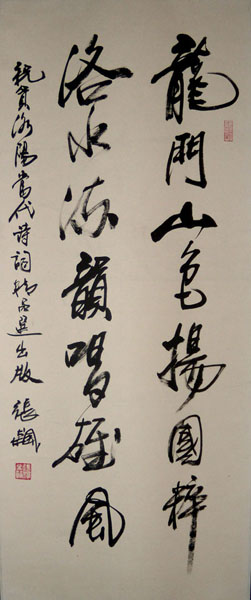 龍門山色揚國粹
洛水流韻唱雄風
祝賀洛陽當代詩詞精品選出版 張飆